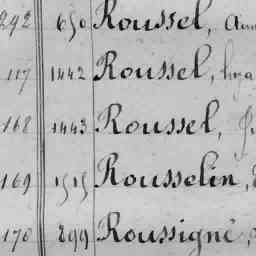 292 650 Roussel,
117 1442 Roussel,
168 1443 Roussel,
169 1515 Rousselin,
170 899 Roussigné,